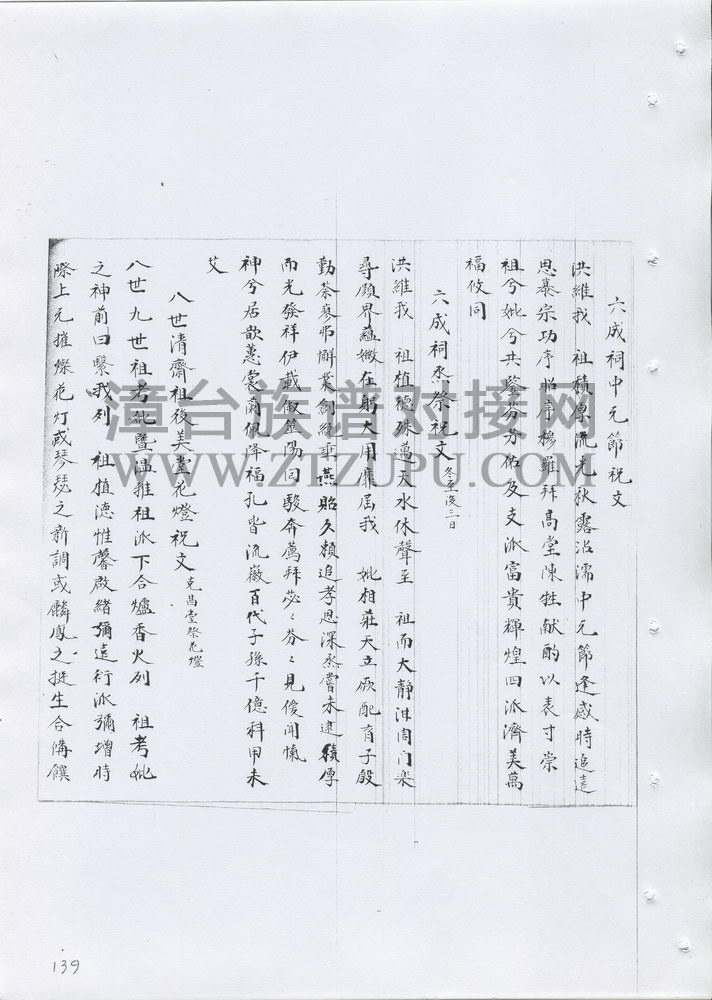 六成祠中元節祝文
洪維我 祖積厚流光秋露沾濡中元節逢感時追遠
思慕宗功序昭序穆羅拜高堂陳牲献酌以表寸崇
祖兮妣兮共鉴芬芳佑及支派富貴輝煌四派濟美萬
福攸同
六成祠烝祭祝文 冬至後三日
洪維我 祖植德殊邁天水休聲至 祖而大静洪周门楽
尋颜界蕴嫩在躬大用靡屈我 妣相莊天立厥配育子殷
勤荼蓼弗懈業創統垂燕貽久賴追孝思深烝嘗未逮積厚
而光發祥伊戴俶筮陽回駿奔薦拜苾々芬々見僾聞愾
神兮居歆蕙裳蘭佩降福孔皆流徽百代子孫千億科甲未
艾
八世清齋祖後美堂花燈祝文 克昌堂祭花燈
八世九世祖考妣暨温雅祖派下合爐香火列 祖考妣
之神前曰繄我列 祖植德惟馨啟緒彌遠衍派彌增時
際上元摧燦花灯或琴瑟之新調或麟鳳之挺生合備饌
139
漳台族谱对接网
WWW.ZTZUPU.COM